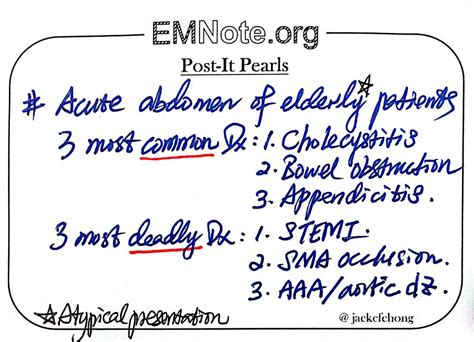 EMNote.org
Post-It Pearls
# Acute abdomen of elderly☆ patients
3 most common Dx: 1. Cholecystitis
2. Bowel obstruction
3. Appendicitis.
3 most deadly Dx: 1. STEMI.
2. SMA occlusion.
3. AAA/aortic dz.
☆Atypical presentation
@ jackcfchong